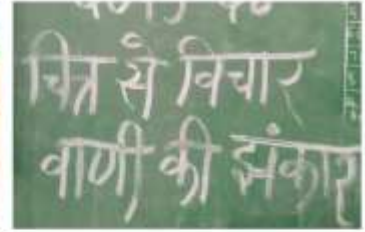 चित्र से विचार
वाणी की झंकार